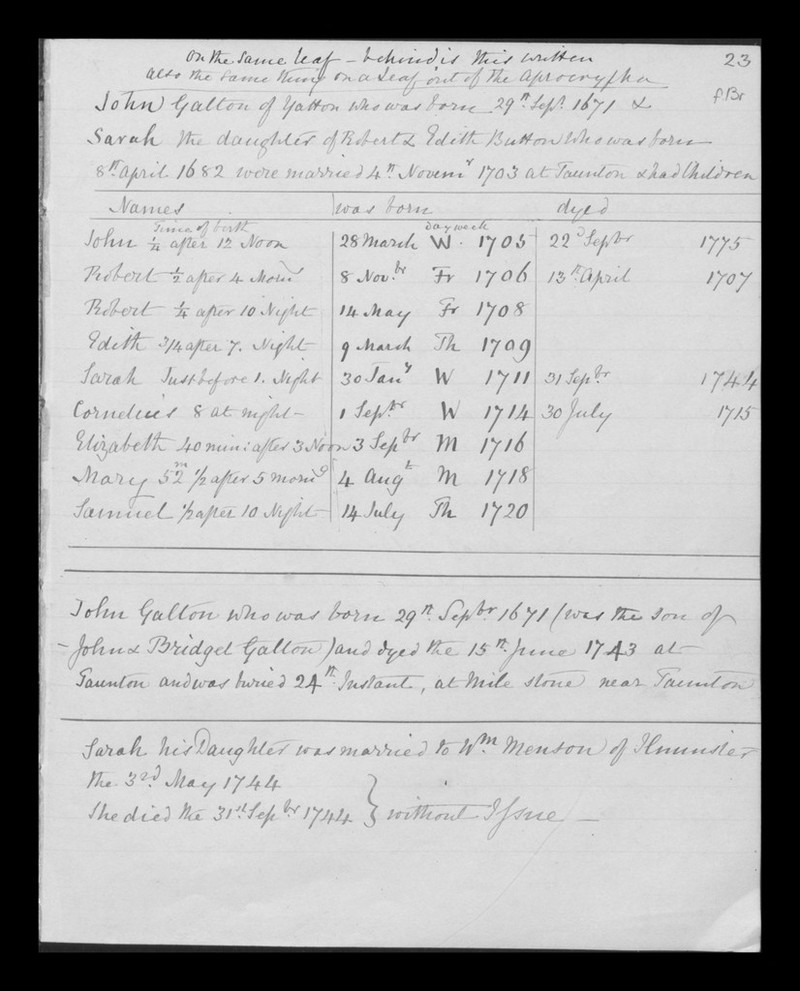 23
on the same leaf – behind is this written
also the same thing on a Leaf out of the Aprocrypha
f.Br
John Galton of Yatton who was born 29th Septr. 1671 &
Sarah the daughter of Robert & Edith Button Who was born
8th April 1682 were married 4th Novemr 1703 at Taunton & had Children
Names was born dyed
Time of birth Day week
John ¼ after 12 Noon 28 March W. 1705 22d Septbr 1775
Robert ½ after 4 Morng 8 Novbr Fr 1706 13th April 1707
Robert ¼ after 10 Night 14 May Fr 1708
Edith 3/4 after 7. Night 9 March Th 1709
Sarah Just before 1. Night 30 Jany W 1711 31 Sepbr 1744
Cornelius 8 at night – 1 Septr W 1714 30 July 1715
Elizabeth 40 min: after 3 Noon 3 Sepbr M 1716
Mary 5m2 1/2 after 5 morng 4 Augt M 1718
Samuel 1/2 after 10 Night 14 July Th 1720
John Galton who was born 29th Sepbr 1671 (was the son of
– John & Bridget Galton) and dyed the 15th June 1743 at
Taunton and was buried 24th Instant, at Mile stone near Taunton
Sarah his Daughter was married to Wm Menson of Ilminster
the 3rd May 1744
She died the 31st Sepbr 1744 } without Issue –